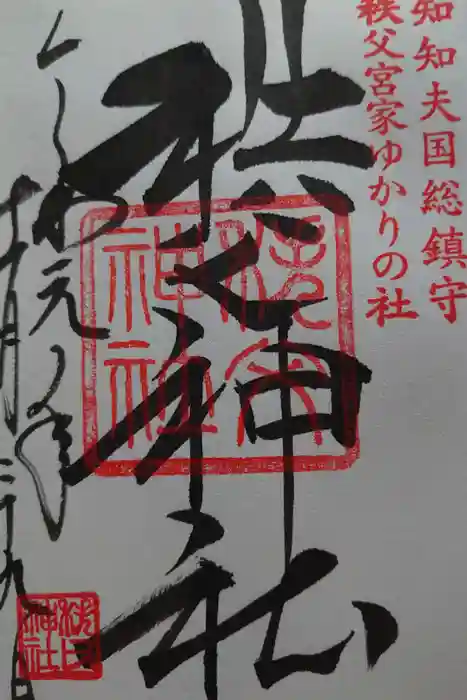 知知夫国総鎮守
秩父宮家ゆかりの社
秩父神社
秩父
神社
令和元年
十一月二十九日